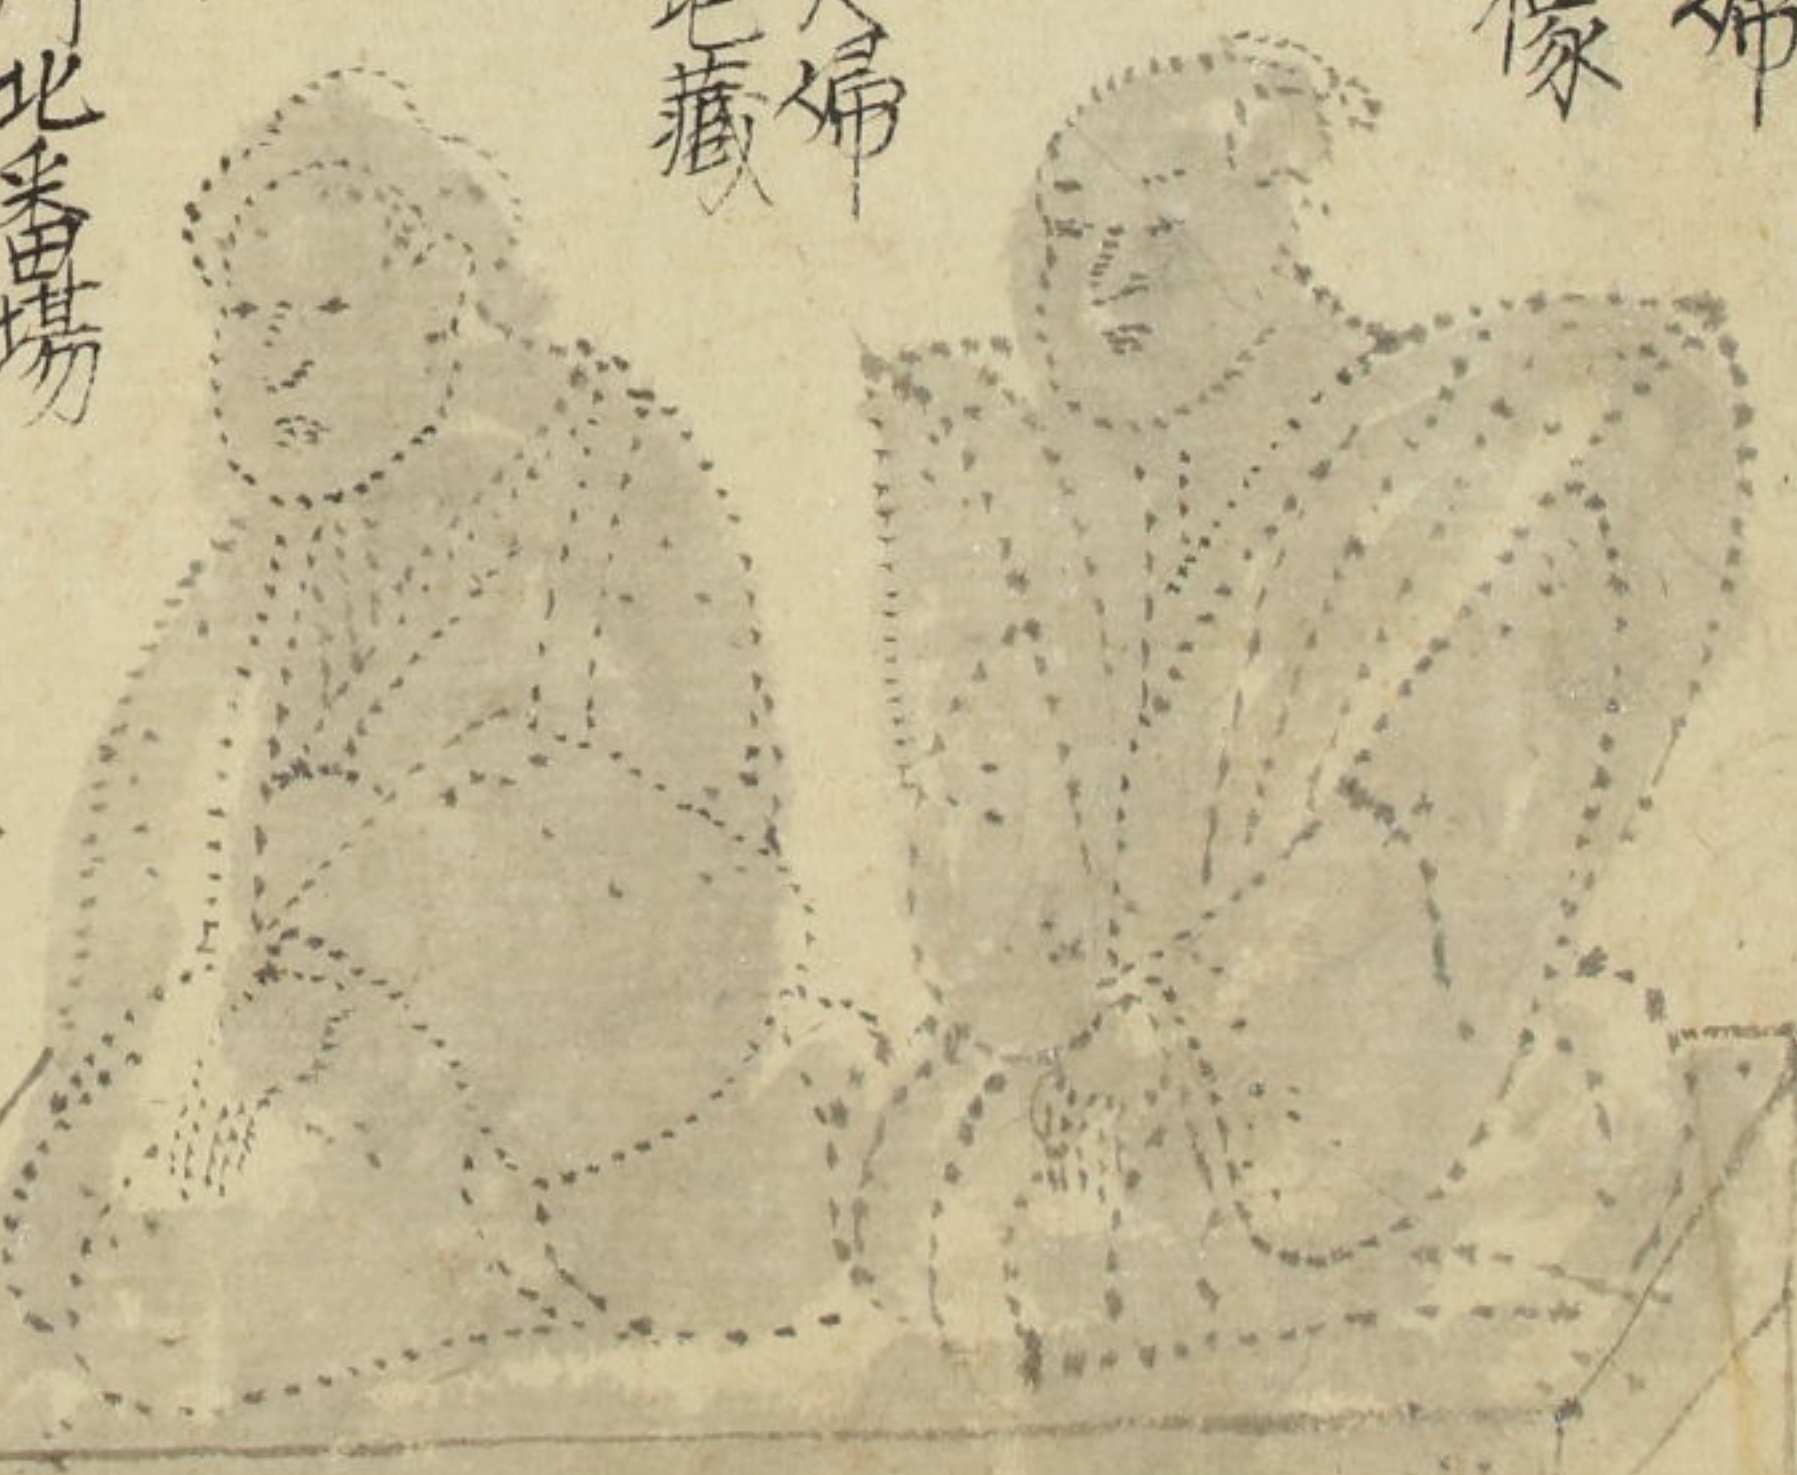 婦
像
夫婦
地藏
北番場